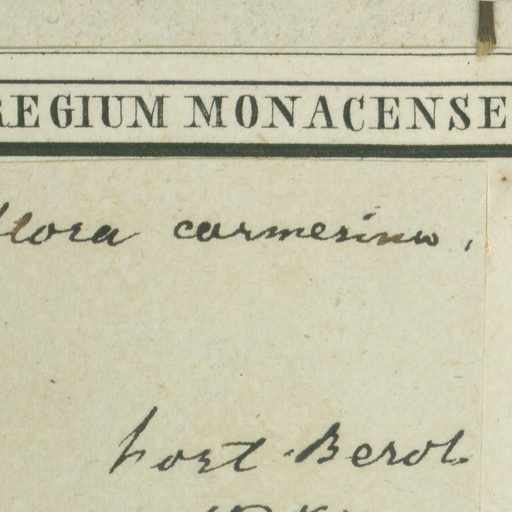 REGIUM MONACENSE
flora carmesina,
hort. Berol.